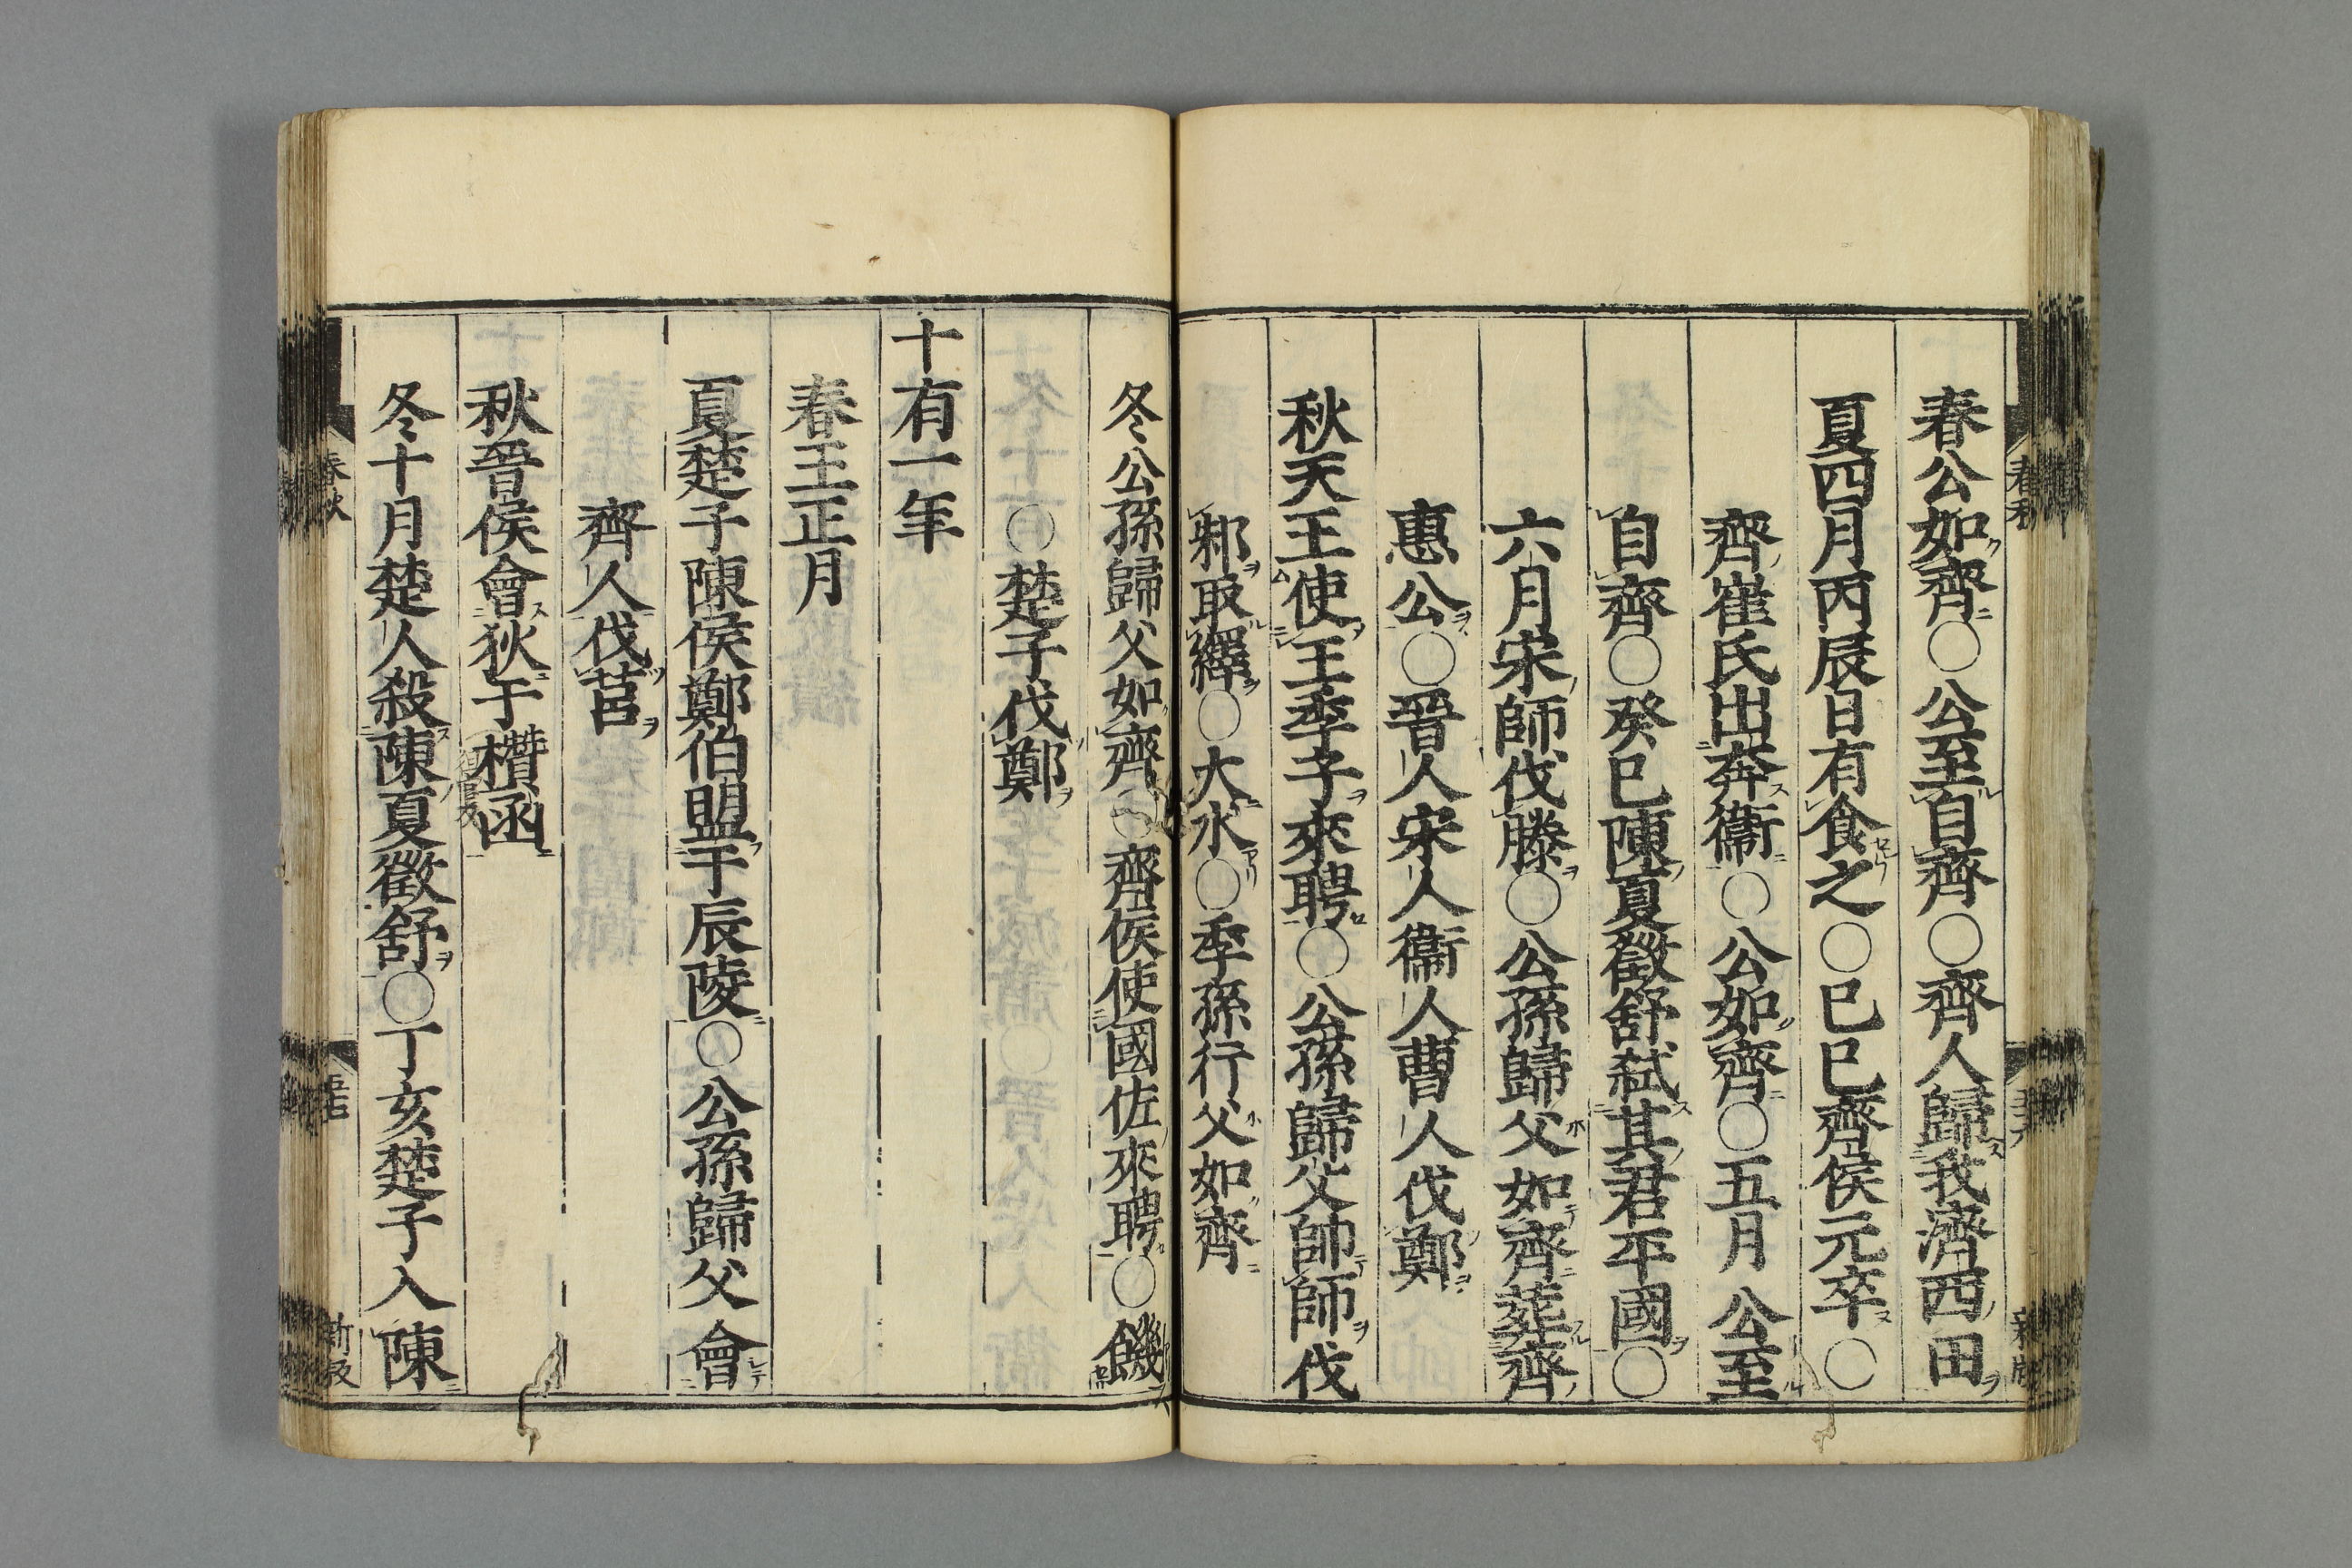 春公如齊○公至自齊○齊人歸我濟西田
夏四月丙辰日有食之○己巳齊侯元卒○
齊崔氏出奔衞○公如齊○五月公至
自齊○癸巳陳夏徵舒弑其君平國○
六月宋師伐滕○公孫歸父如齊葬齊
惠公○晉人宋人衞人曹人伐鄭
秋天王使王季子來聘○公孫歸父帥師伐
邾取繹○大水○季孫行父如齊
冬公孫歸父如齊○齊侯使國佐來聘○饑
○楚子伐鄭
十有一年
春王正月
夏楚子陳侯鄭伯盟于辰陵○公孫歸父會
齊人伐莒
秋晉侯會狄于欑函
冬十月楚人殺陳夏徵舒○丁亥楚子入陳
春秋
新板